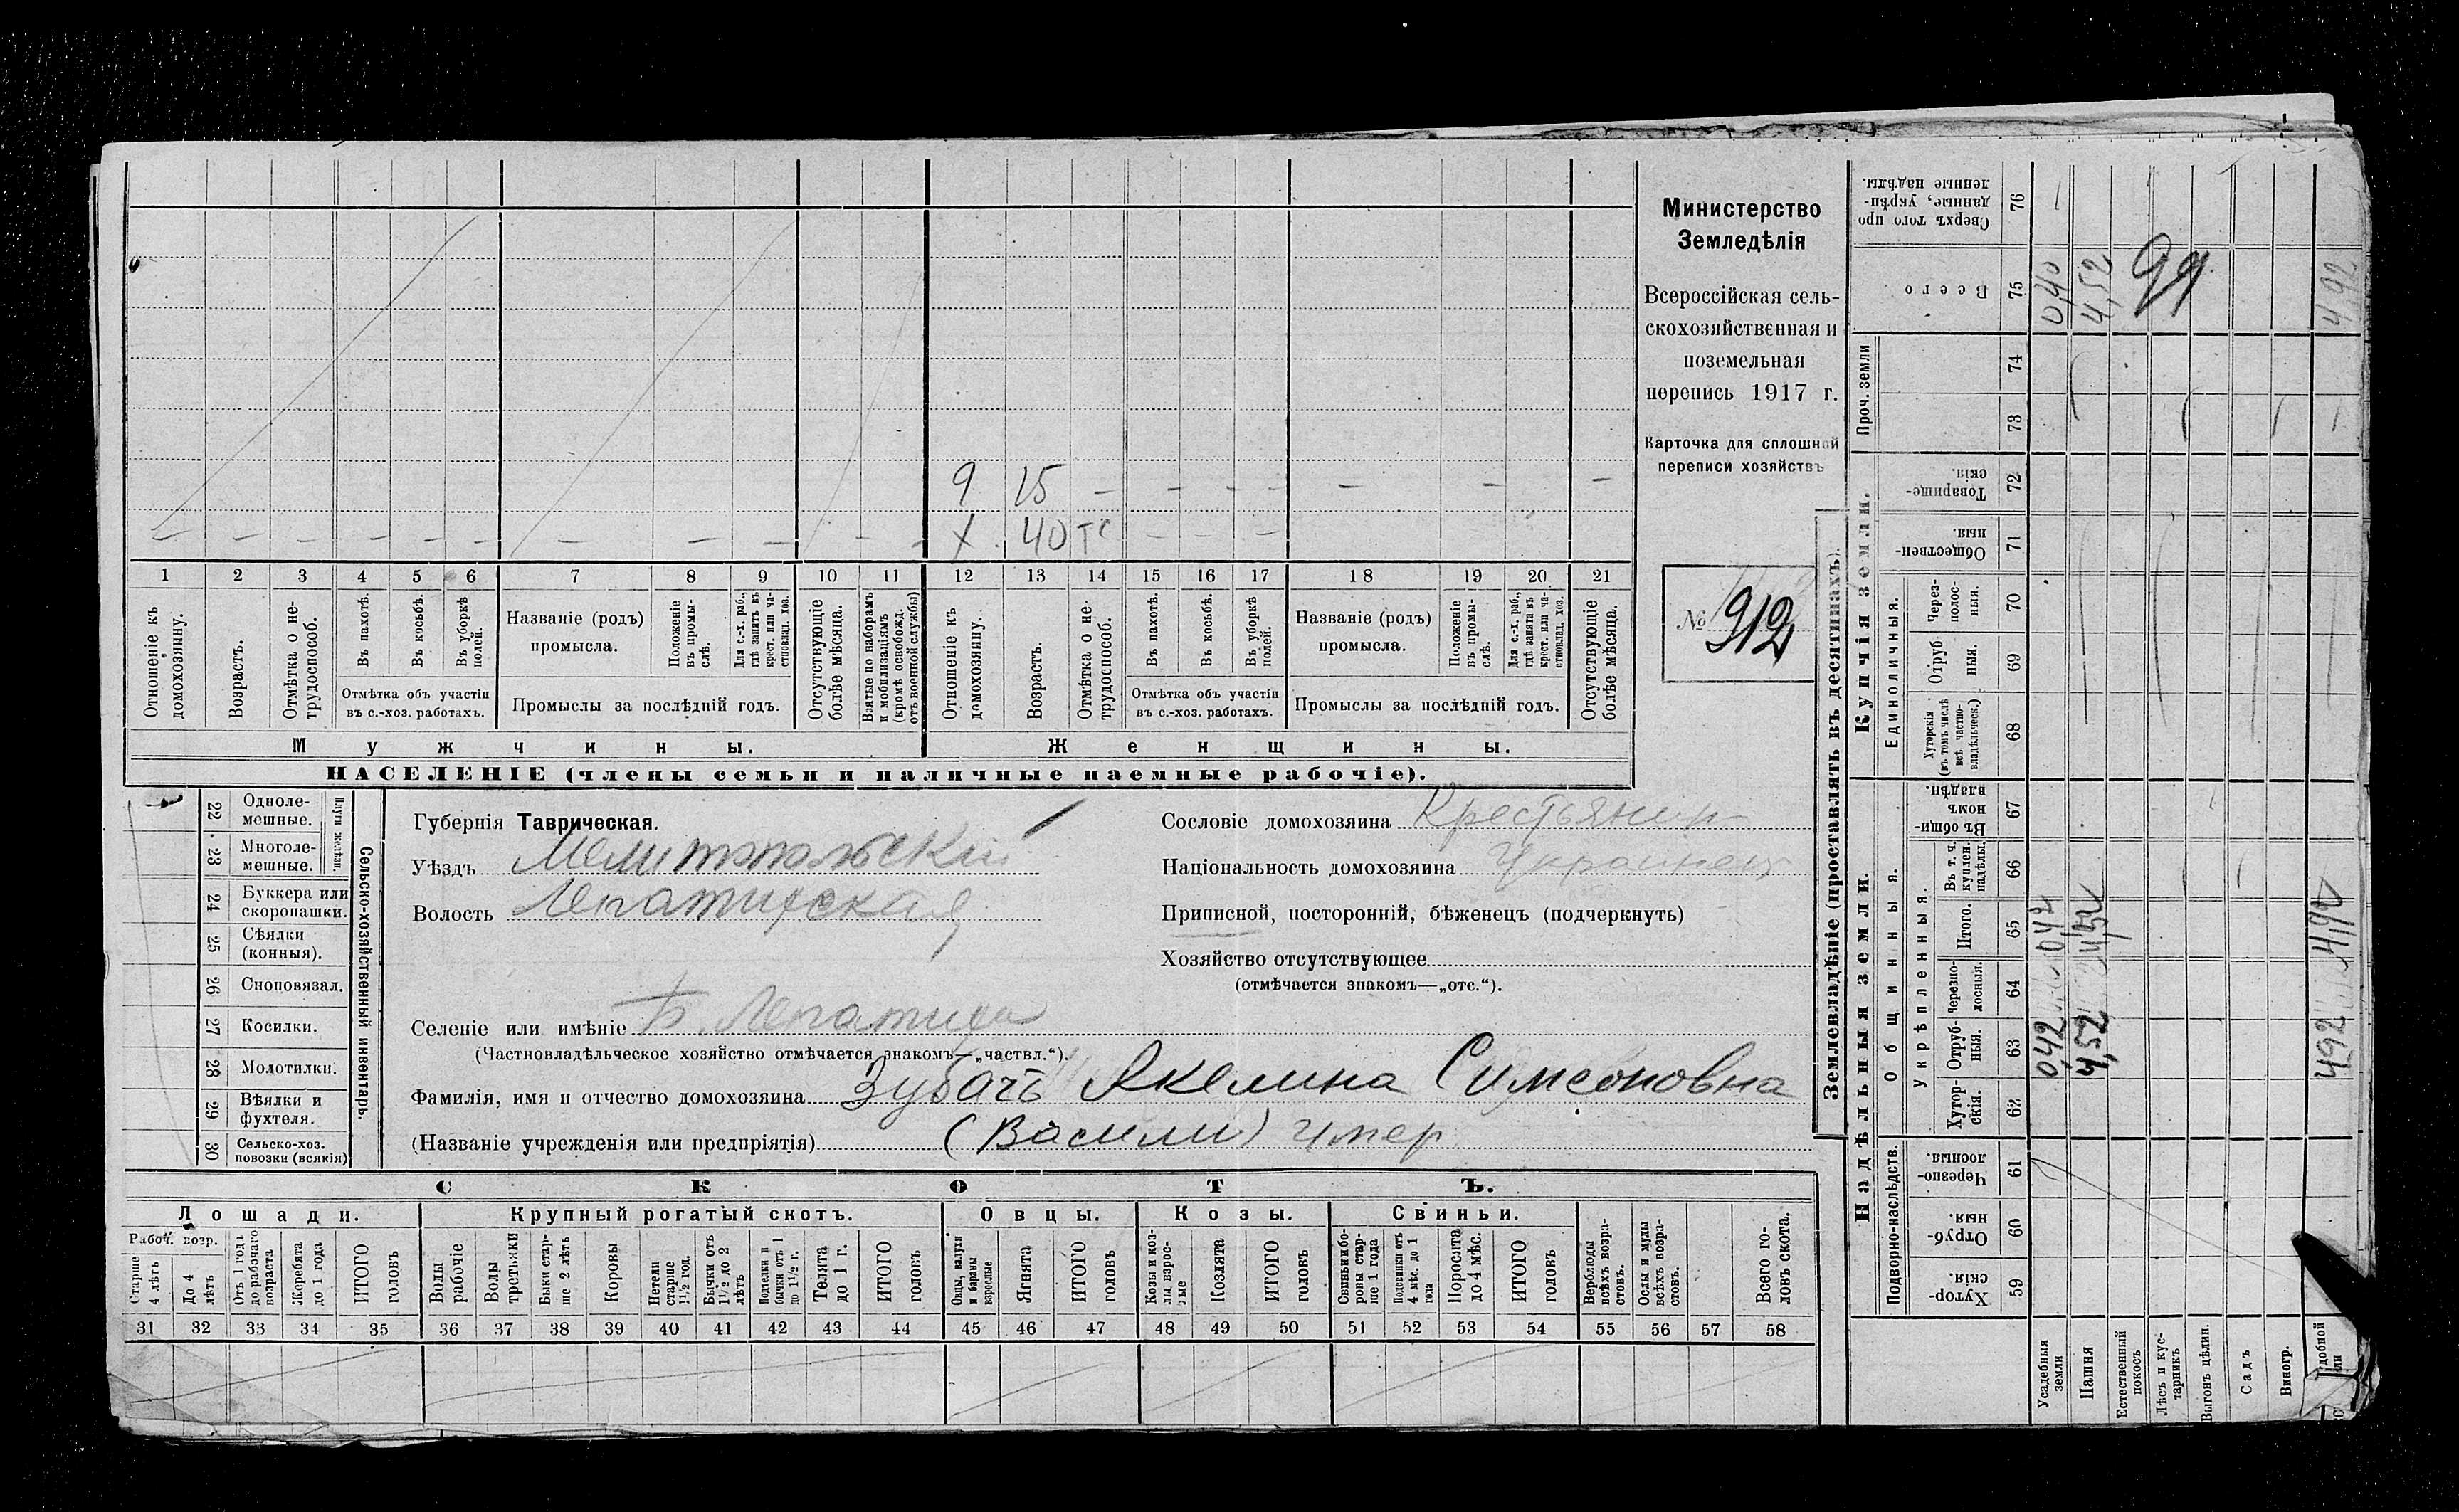 9 15 – – – – – – –
– – – – – – – – – – – Х 40 тс – – –
1 2 3 4 5 6 7 8 9 10 11 12 13 14 15 16 17 18 19 20 21
Отношеніе къ домохозяину.
Возрастъ.
Отмѣтка о не-
трудоспособ.
Въ пахотѣ.
Въ косьбѣ.
Въ уборкѣ
полей.
Отмѣтка объ участіи
въ с.-хоз. работахъ.
Названіе (родъ)
промысла.
Положеніе
въ промы-
слѣ.
Для с.-х. раб.,
гдѣ занятъ въ
крест. или ча-
стновлад. хоз.
Промыслы за послѣдній годъ.
Отсутствующіе
болѣе мѣсяца.
Взятые по наборамъ
и мобилизаціямъ
(кромѣ освобожд.
отъ военной службы)
Отношеніе къ
домохозяину.
Возрастъ.
Отмѣтка о не-
трудоспособ.
Въ пахотѣ.
Въ косьбѣ.
Въ уборкѣ
полей.
Отмѣтка объ участіи
въ с.-хоз. работахъ.
Названіе (родъ)
промысла.
Положеніе
въ промы-
слѣ.
Для с.-х. раб.,
гдѣ занята въ
крест. или ча-
стновлад. хоз.
Промыслы за послѣдній годъ.
Отсутствующіе
болѣе мѣсяца.
Мужчины.
Женщины.
НАСЕЛЕНІЕ (члены семьи и наличные наемные рабочіе).
Министерство
Земледѣлія
Всероссійская сель-
скохозяйственная и
поземельная
перепись 1917 г.
Карточка для сплошной
переписи хозяйствъ
№ 912
22 Одноле-
мешные.
23 Многоле-
мешные.
Плуги желѣзн.
24 Буккера или
скоропашки.
25 Сѣялки
(конныя).
26 Сноповязал.
27 Косилки.
28 Молотилки.
29 Вѣялки и
фухтеля.
30 Сельско-хоз.
повозки (всякія)
Сельско-хозяйственный инвентарь.
Губернія Таврическая.
Уѣздъ Мелитопольскій
Волость Лепатихская
Селеніе или имѣніе Б. Лепатиха
(Частновладѣльческое хозяйство отмѣчается знакомъ—„частвл.“).
Фамилія, имя и отчество домохозяина Зубачъ Акелина Симсоновна
(Названіе учрежденія или предпріятія) (Васили) умер
Сословіе домохозяина Крестьянин
Національность домохозяина Украинец
Приписной, посторонній, бѣженецъ (подчеркнуть)
Хозяйство отсутствующее
(отмѣчается знакомъ—„отс.“).
СКОТЪ.
Лошади.
Крупный рогатый скотъ.
Овцы.
Козы.
Свиньи.
Рабоч. возр.
Старше
4 лѣтъ
До 4
лѣтъ
Отъ 1 года
до рабочаго
возраста
Жеребята
до 1 года
ИТОГО
головъ
Волы
рабочіе
Волы
третьяки
Быки стар-
ше 2 лѣтъ
Коровы
Нетели
старше
1½ год.
Бычки отъ
1½ до 2
лѣтъ
Подтелки и
бычки отъ 1
до 1½ г.
Телята
до 1 г.
ИТОГО
головъ
Овцы, валухи
и бараны
взрослые
Ягнята
ИТОГО
головъ
Козы и коз-
лы взрос-
лые
Козлята
ИТОГО
головъ
Свиньи и бо-
ровы стар-
ше 1 года
Подсвинки отъ
4 мѣс. до 1
года
Поросята
до 4 мѣс.
ИТОГО
головъ
Верблюды
всѣхъ возра-
стовъ.
Ослы и мулы
всѣхъ возра-
стовъ.
Всего го-
ловъ скота.
31 32 33 34 35 36 37 38 39 40 41 42 43 44 45 46 47 48 49 50 51 52 53 54 55 56 57 58
Землевладѣніе (проставлять въ десятинахъ).
Сверхъ того про
данные, укрѣп-
ленные надѣлы.
76
Всего
75 0,40 4,52 4,92
99
Проч. земли
74
73
Купчія земли.
Товарище-
скія.
72
Обществен-
ныя.
71
Единоличныя.
Через-
полос-
ныя.
70
Отруб
ныя.
69
Хуторскія
(въ томъ числѣ
всѣ частно-
владѣльческ.)
68
Надѣльныя земли.
Общинныя.
Въ общи-
номъ
владѣн.
67
Укрѣпленныя.
Въ т. ч.
куплен.
надѣлы.
66
Итого.
65 0,42 4,52 4,92
Черезпо-
лосныя.
64
Отруб-
ныя.
63 0,42 4,52 4,92
Хутор-
скія.
62
Подворно-наслѣдств.
Черезпо-
лосныя.
61
Отруб-
ныя.
60
Хутор-
скія.
59
Усадебныя
земли
Пашня
Естественный
покосъ
Лѣсъ и кус-
тарникъ
Выгонъ цѣлин.
Садъ
Виногр.